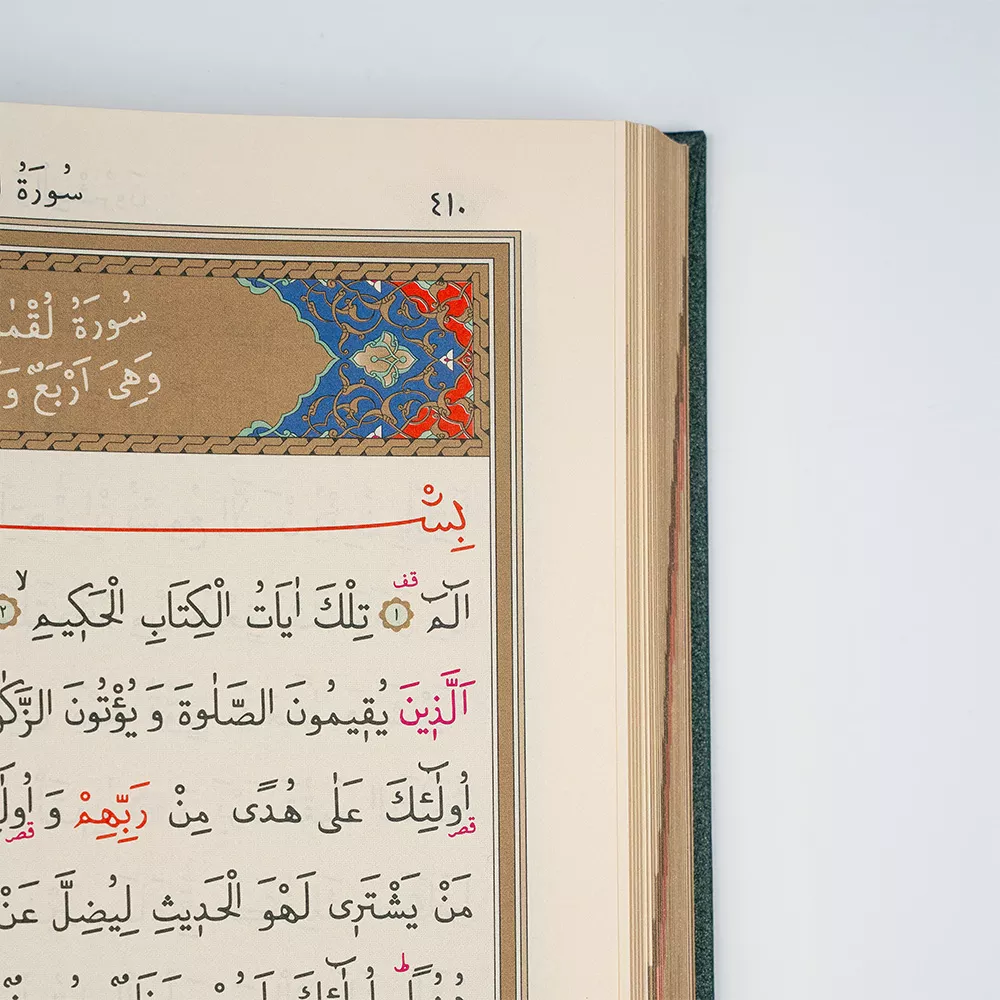 سُورَةُ
٤١٠
سُورَةُ
وَهِىَ اَرْبَعٌ وَ
بِسْ
الٓمٓ ۚقف ﴿١﴾ تِلْكَ اٰيَاتُ الْكِتَابِ الْحَك۪يمِۙ ﴿٢﴾
اَلَّذ۪ينَ يُق۪يمُونَ الصَّلٰوةَ وَ يُؤْتُونَ
اُولٰٓئِكَ قصر عَلٰى هُدًى مِنْ رَبِّهِمْ وَ قصر
مَنْ يَشْتَر۪ى لَهْوَ الْحَد۪يثِ لِيُضِلَّ عَنْ
ط